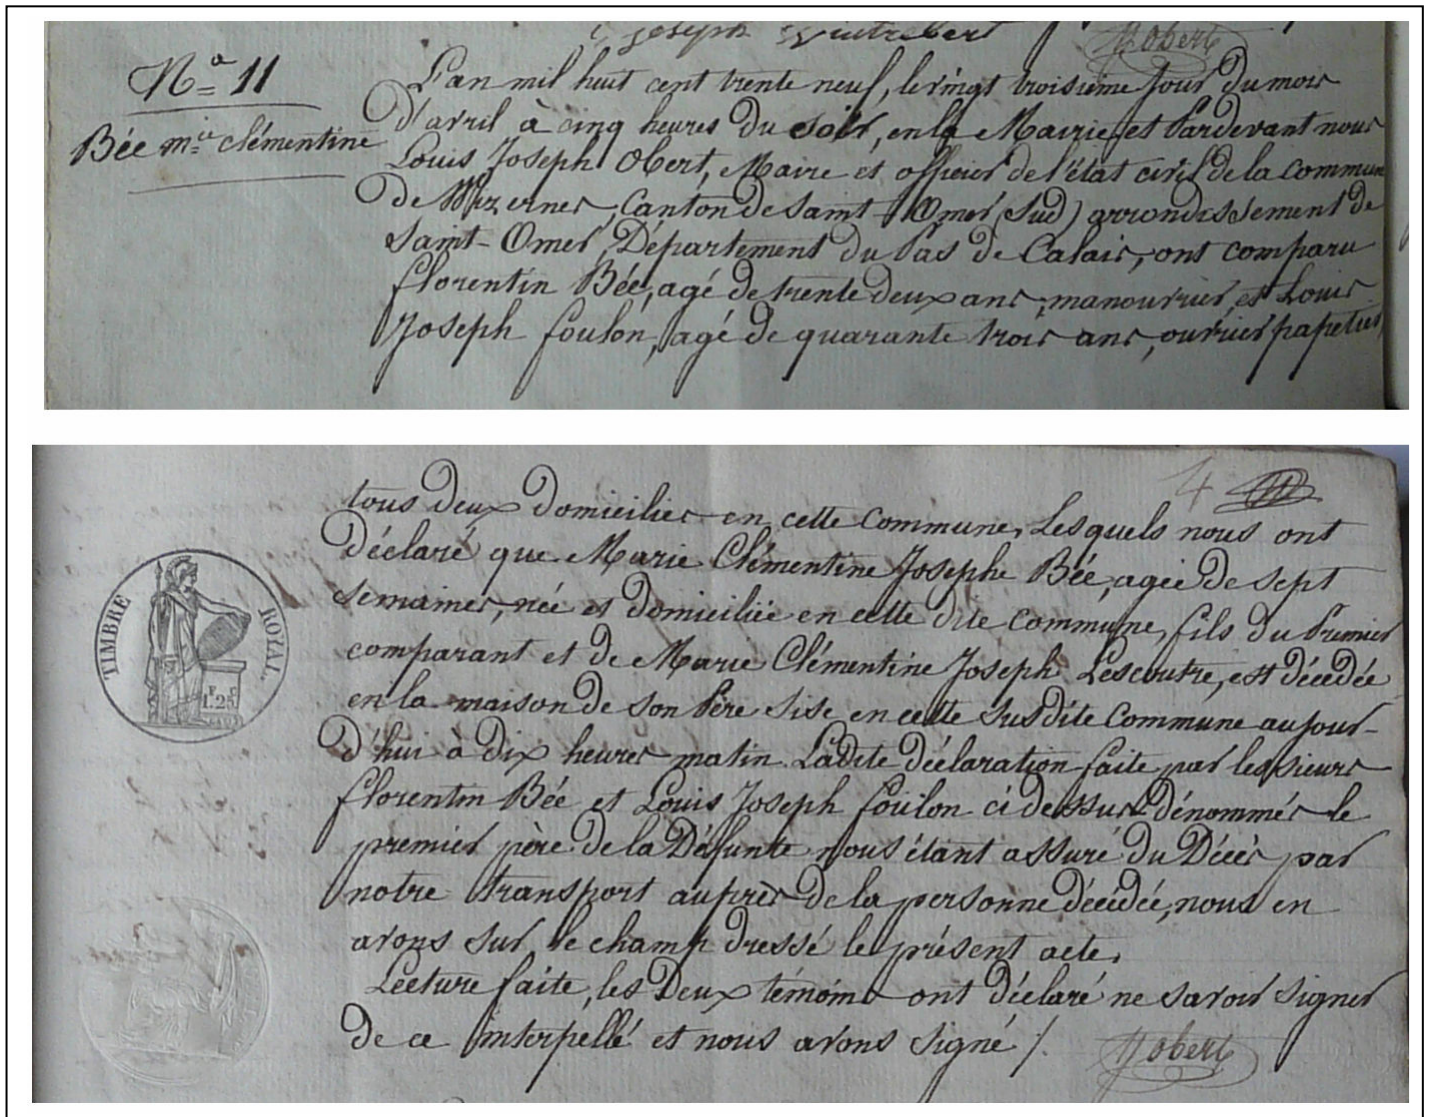 Joseph Wintrebert
Obert
Nº 11
Bée mie clémentine
L'an mil huit cent trente neuf, le vingt troisième jour du mois
d'avril à cinq heures du soir, en la Mairie, et Pardevant nous
Louis Joseph Obert, Maire et officier de l'état civil de la commune
de Wizernes, Canton de Saint-Omer (Sud) arrondissement de
Saint-Omer, Département du Pas de Calais, ont comparu
florentin Bée, agé de trente deux ans, manouvrier, et Louis
Joseph foulon, agé de quarante trois ans, ouvrier papetier,
4
tous deux domiciliés en cette commune, Lesquels nous ont
déclaré que Marie Clémentine Josephe Bée, agée de sept
semaines, née et domiciliée en cette dite commune, fils du Premier
comparant et de Marie Clémentine Joseph Lescoutre, est décédée
en la maison de son Père sise en cette susdite commune aujour-
d'hui à dix heures matin. Ladite déclaration faite par les sieurs
florentin Bée et Louis Joseph foulon ci dessus dénommés le
premier père de la Défunte nous étant assuré du Décès par
notre transport auprès de la personne décédée, nous en
avons sur le champ dressé le présent acte.
Lecture faite, les Deux témoins ont déclaré ne savoir signer
de ce interpellé et nous avons signé /.
Obert
TIMBRE ROYAL
1F. 25C